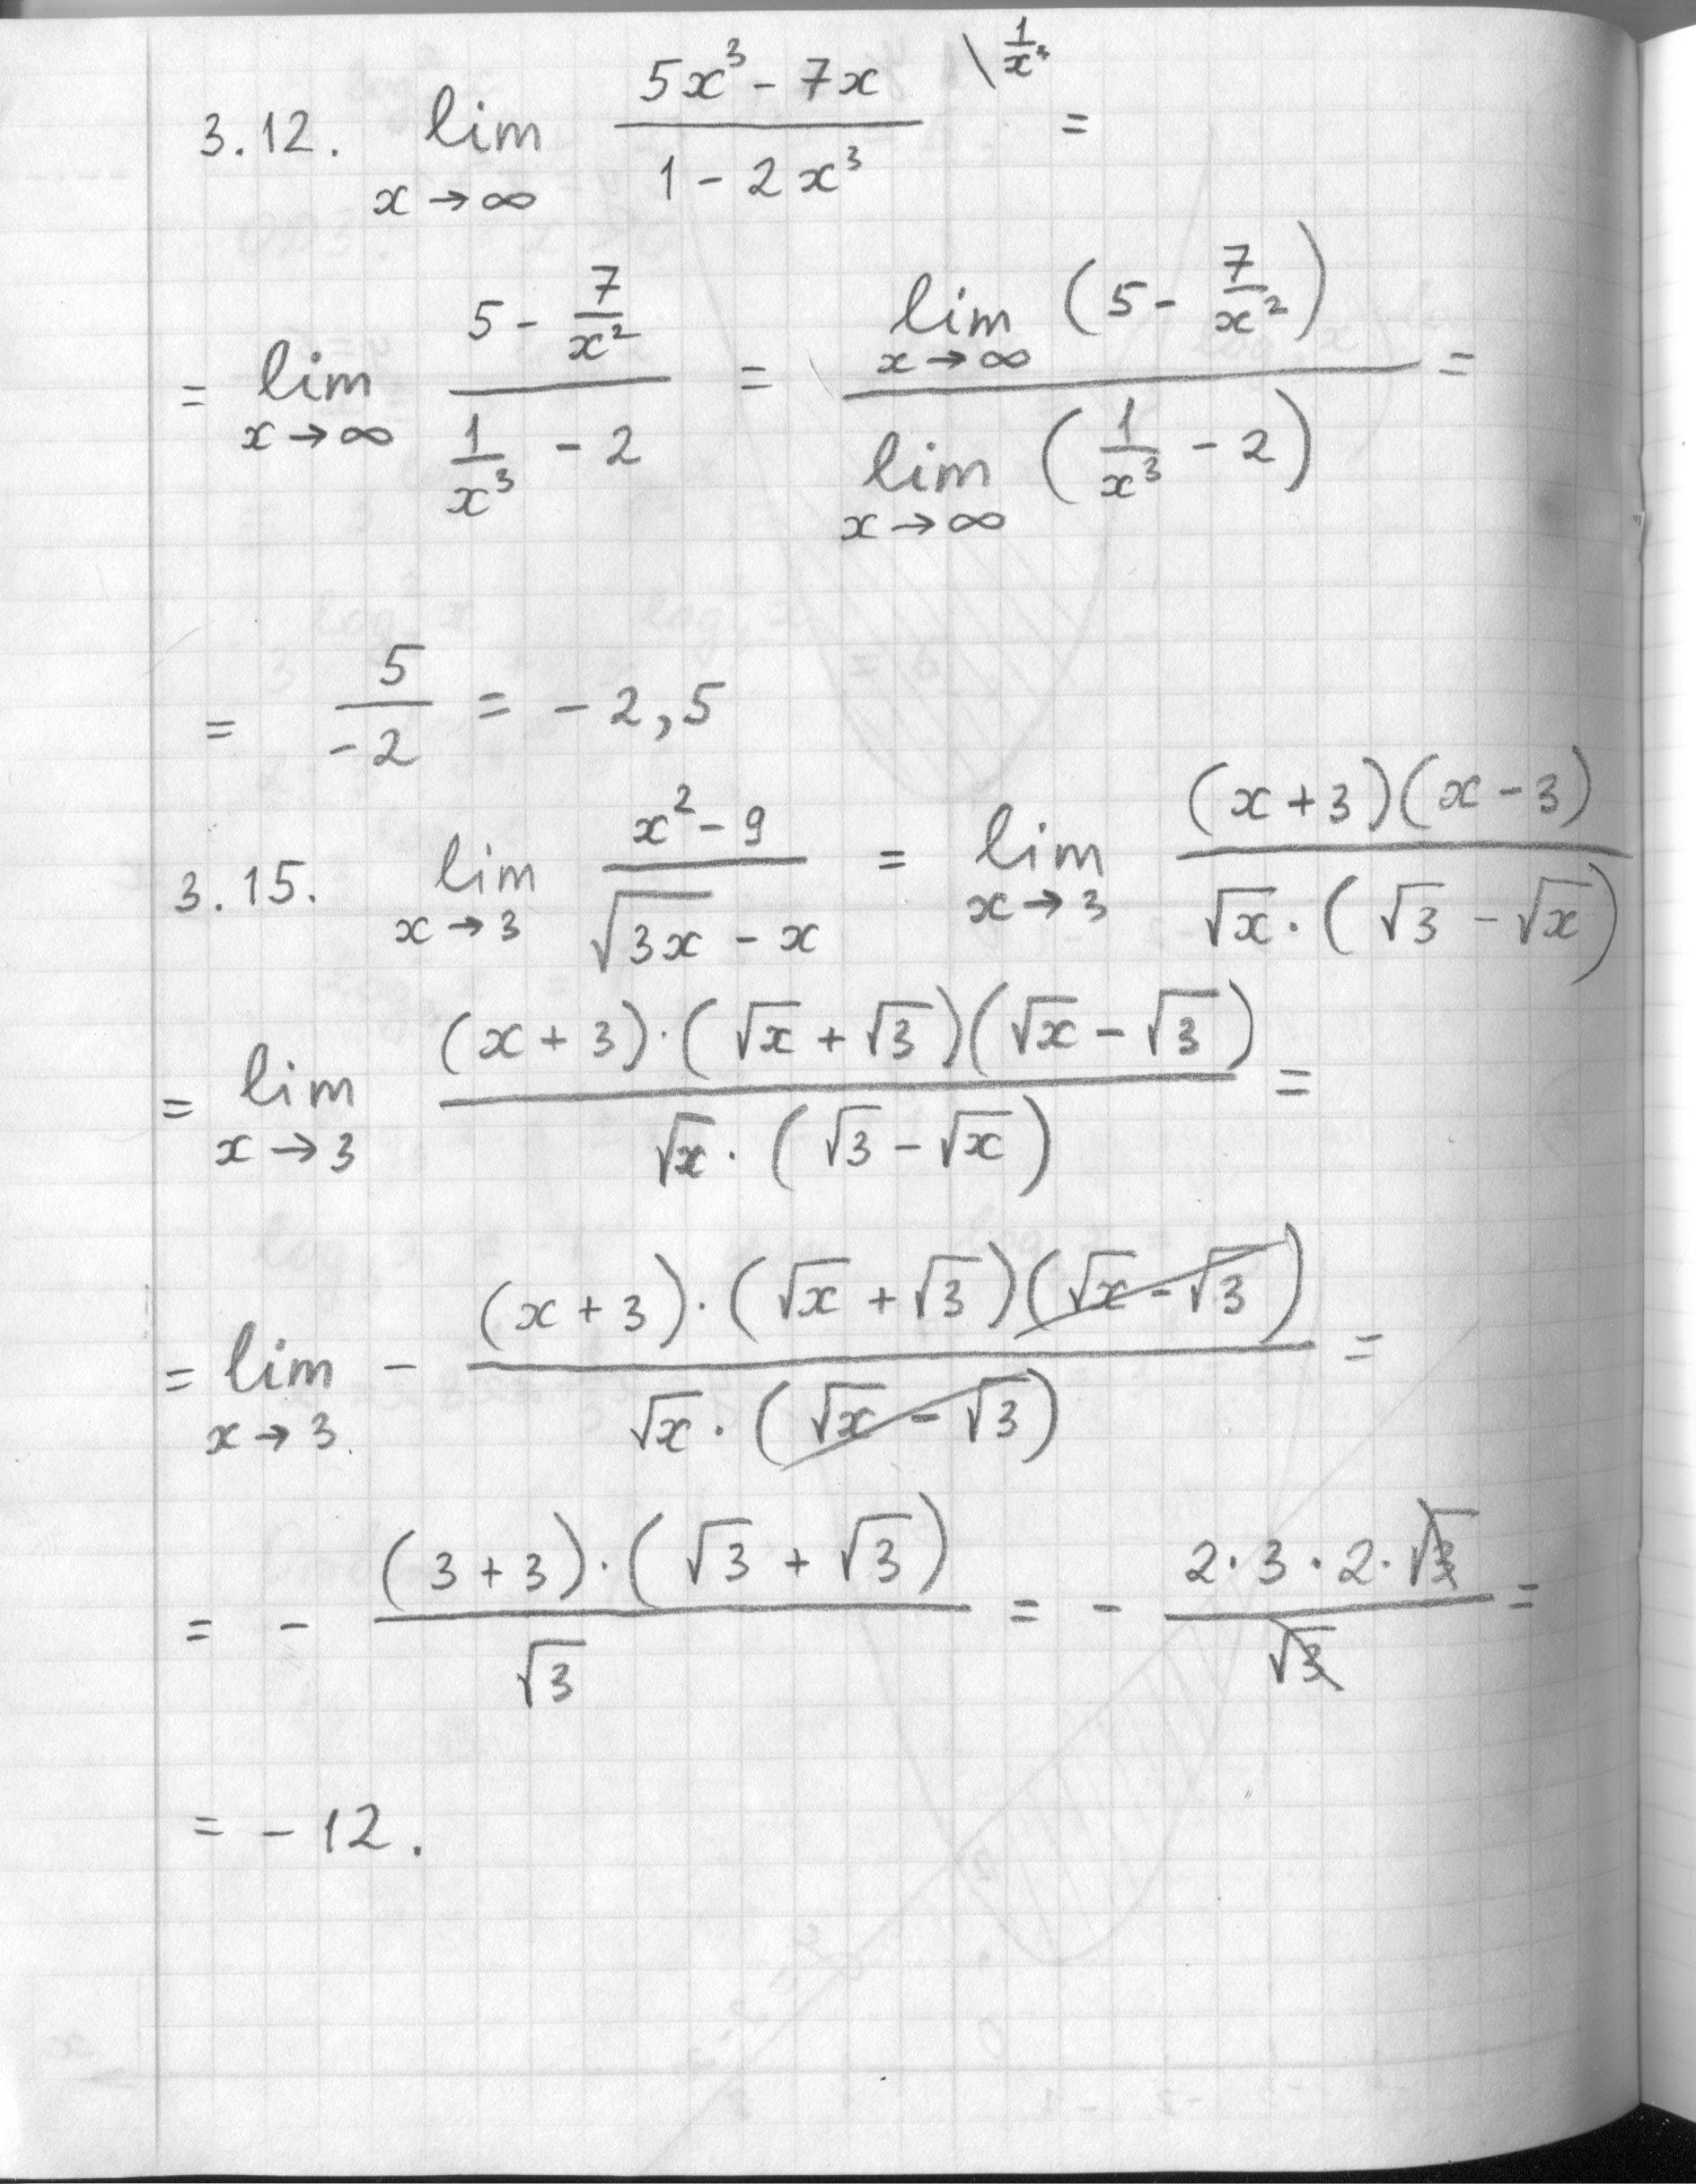 3.12. lim x→∞ (5x³ - 7x)/(1 - 2x³) \ 1/x³ =
= lim x→∞ (5 - 7/x²)/(1/x³ - 2) = (lim x→∞ (5 - 7/x²))/(lim x→∞ (1/x³ - 2)) =
= 5/-2 = -2,5
3.15. lim x→3 (x² - 9)/(√3x - x) = lim x→3 ((x+3)(x-3))/(√x · (√3 - √x))
= lim x→3 ((x+3)·(√x + √3)(√x - √3))/(√x · (√3 - √x)) =
= lim x→3 - ((x+3)·(√x + √3)(√x - √3))/(√x · (√x - √3)) =
= - ((3+3)·(√3 + √3))/√3 = - (2·3·2·√3)/√3 =
= -12.